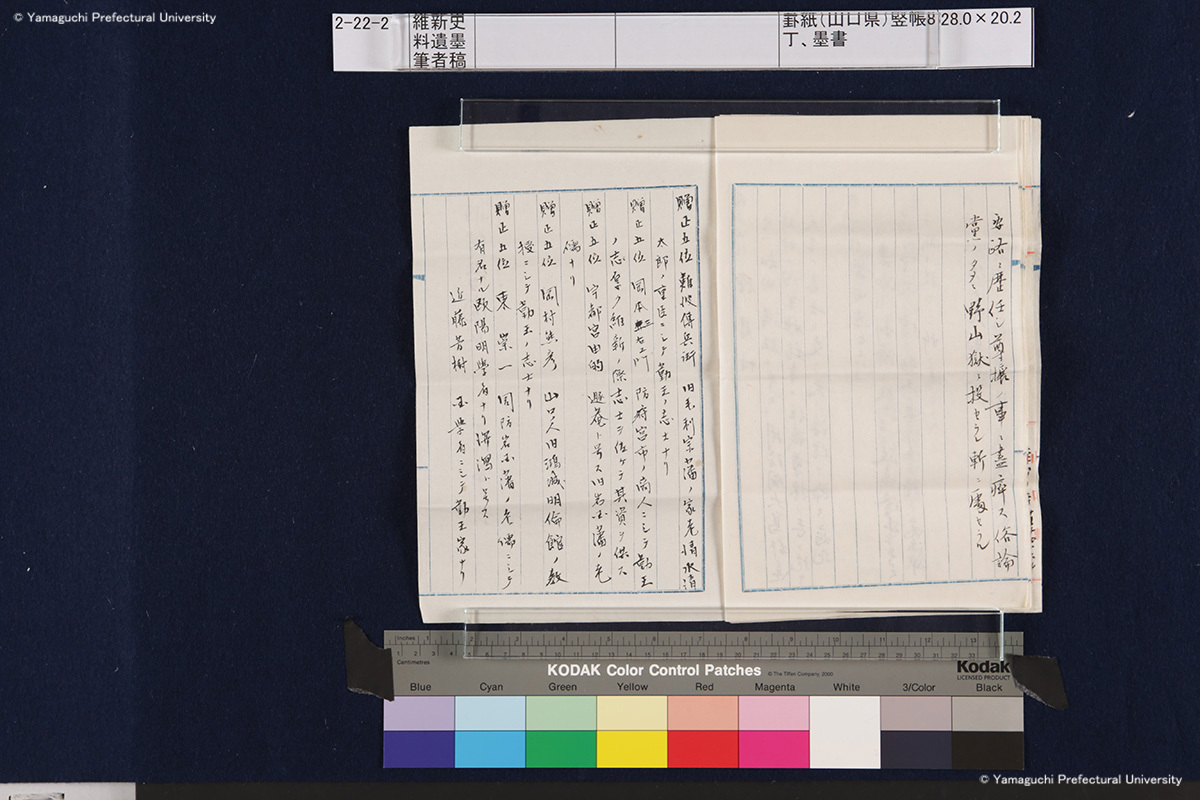 © Yamaguchi Prefectural University
2-22-2
維新史
料遺墨
筆者稿
罫紙(山口県)竪帳8
丁、墨書
28.0×20.2
要路ニ歴任シ尊攘ノ事ニ盡瘁ス俗論
党ノタメ野山獄ニ投セラレ斬ニ處セラル
贈正五位 難波傳兵衛 旧毛利宗藩ノ家老清水清
太郎ノ重臣ニシテ勤王ノ志士ナリ
贈正五位 岡本三右エ門 防府宮市ノ商人ニシテ勤王
ノ志厚ク維新ノ際志士ヲ佐ケテ其資ヲ供ス
贈正五位 宇都宮由的 遯菴ト号ス旧岩国藩ノ老
儒ナリ
贈正五位 岡村熊彦 山口人旧鴻城明倫館ノ教
授ニシテ勤王ノ志士ナリ
贈正五位 東 崇一 周防岩国藩ノ老儒ニシテ
有名ナル陽明学者ナリ澤瀉ト号ス
近藤芳樹 国学者ニシテ勤王家ナリ
Inches
Centimetres
KODAK Color Control Patches
© The Tiffen Company, 2000
Kodak
LICENSED PRODUCT
Blue Cyan Green Yellow Red Magenta White 3/Color Black
© Yamaguchi Prefectural University